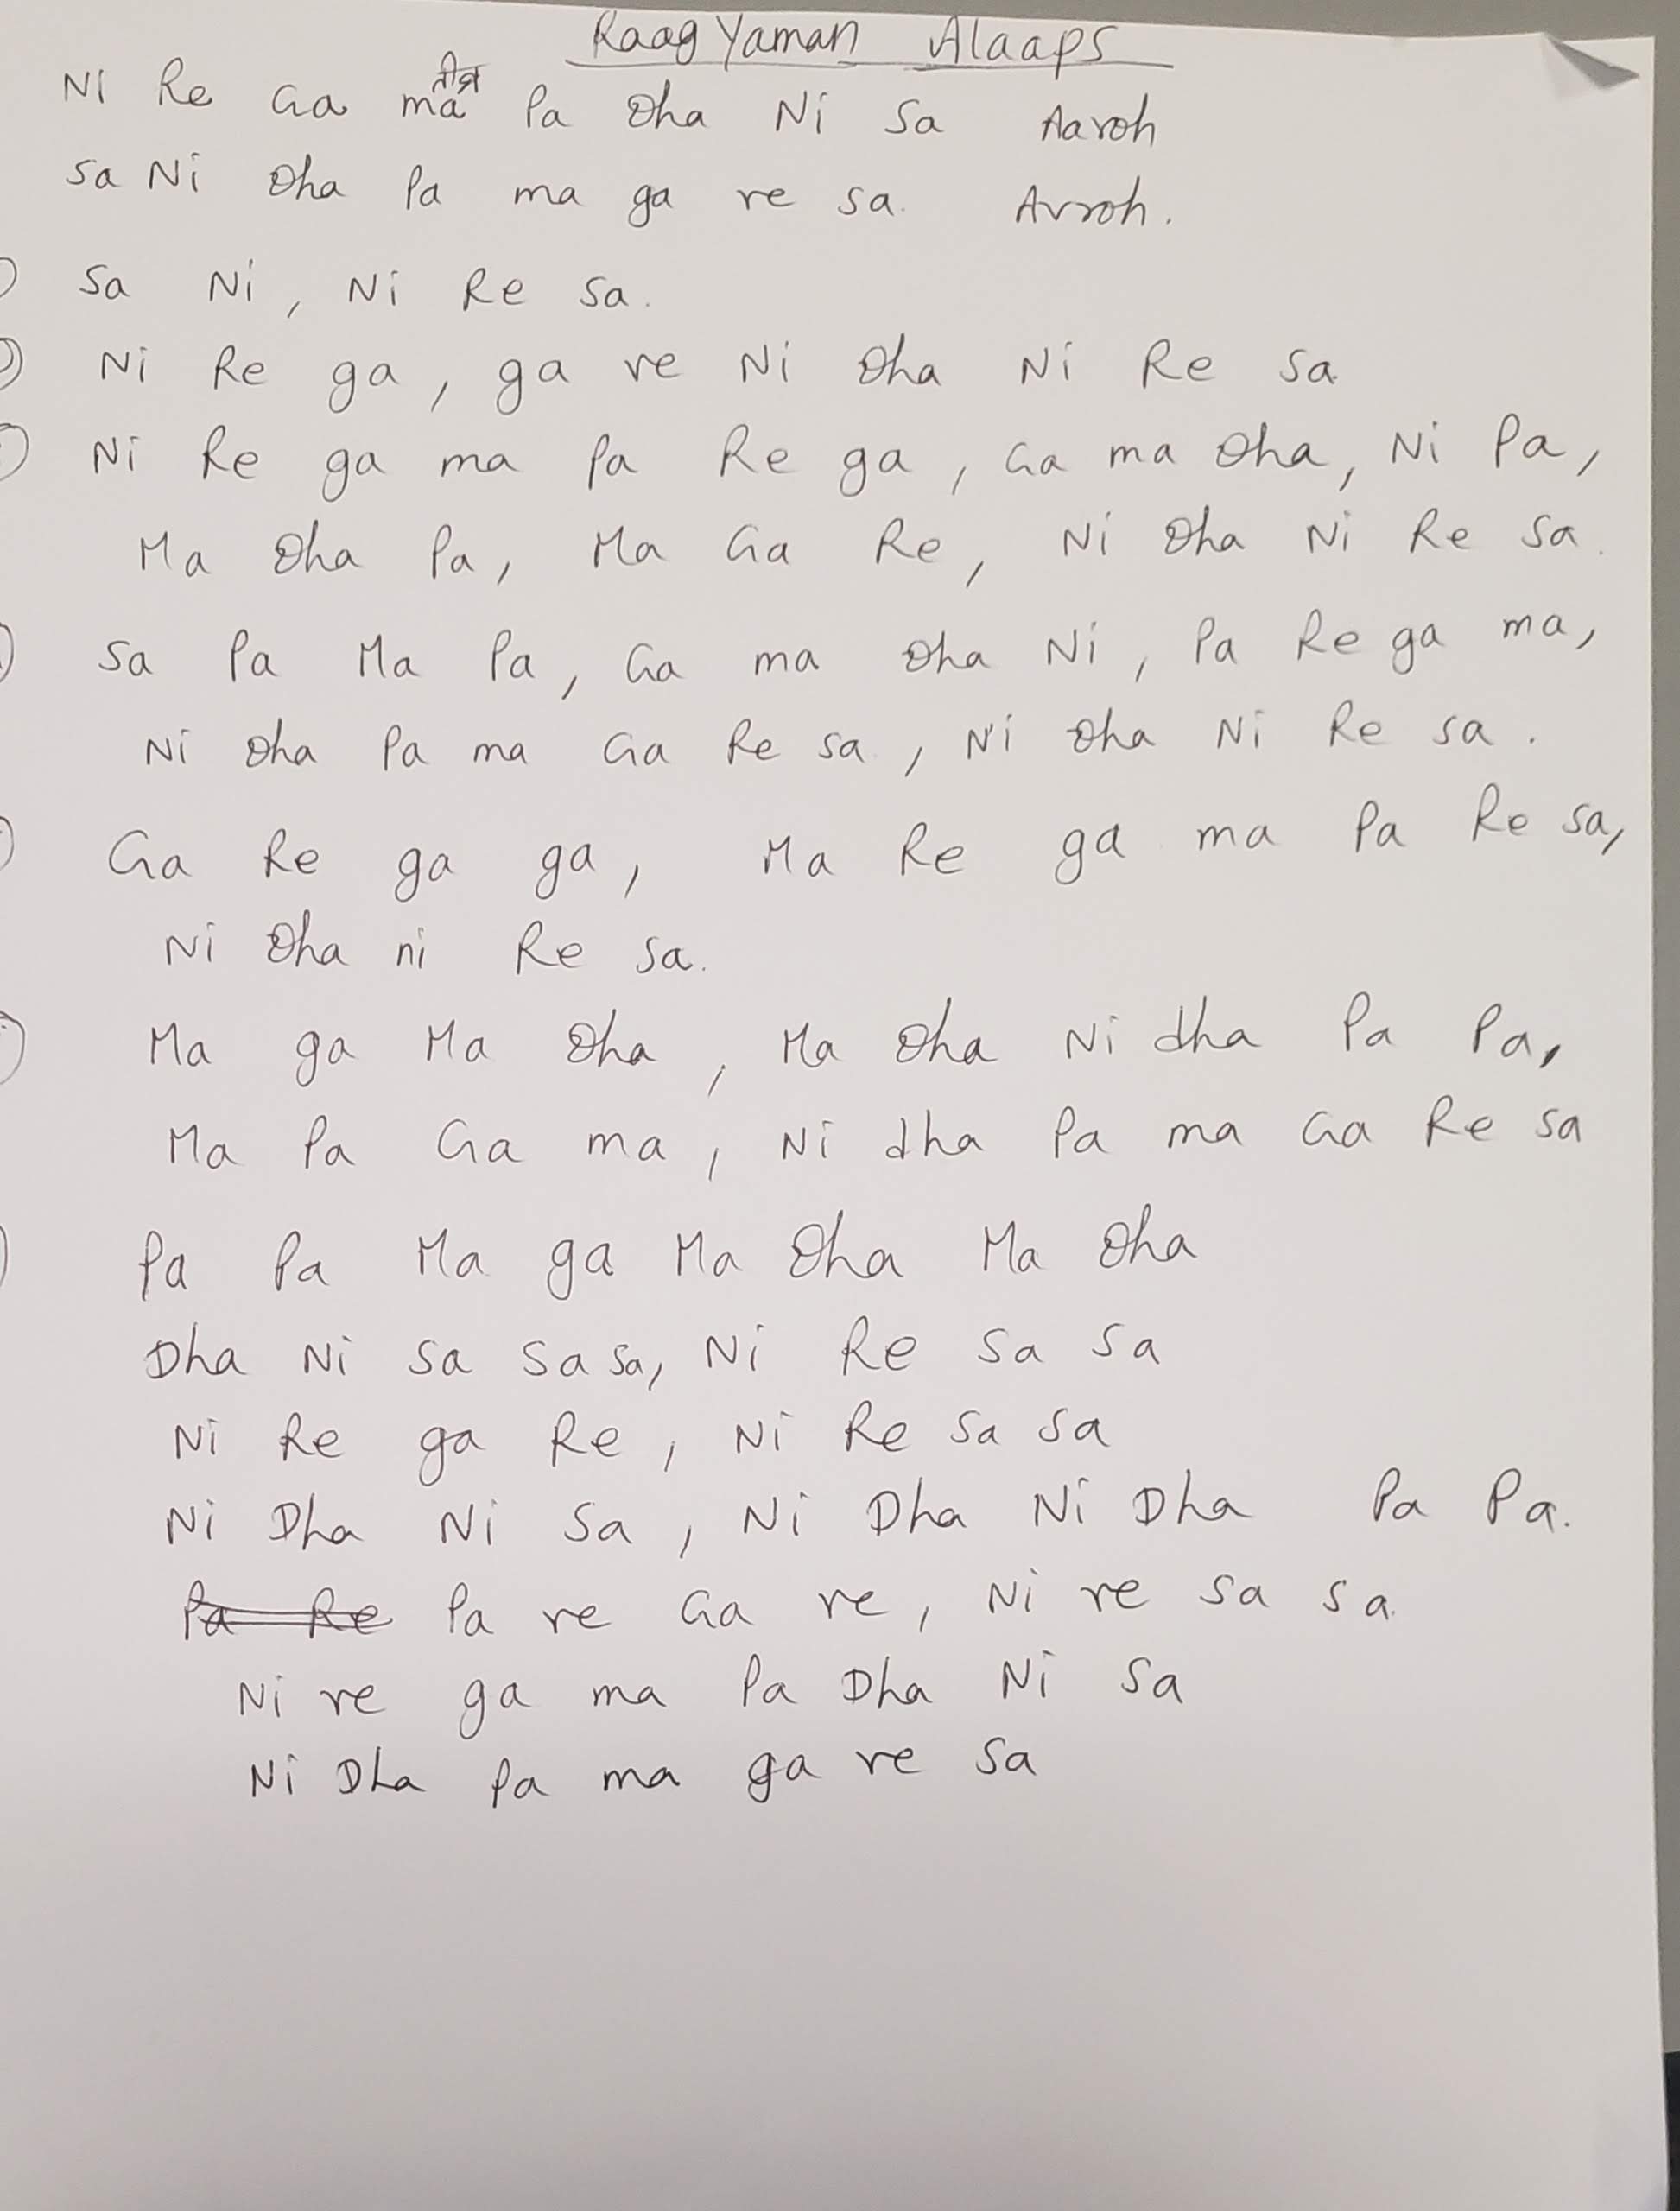 Raag Yaman Alaaps
Ni Re Ga ma तीव्र Pa Dha Ni Sa Aaroh
Sa Ni Dha Pa ma ga re sa. Avroh.
Sa Ni, Ni Re sa.
Ni Re ga, ga re Ni Dha Ni Re sa
Ni Re ga ma Pa Re ga, Ga ma Dha, Ni Pa,
Ma Dha Pa, Ma Ga Re, Ni Dha Ni Re sa.
Sa Pa Ma Pa, Ga ma Dha Ni, Pa Re ga ma,
Ni Dha Pa ma Ga Re sa, Ni Dha Ni Re sa.
Ga Re ga ga, Ma Re ga ma Pa Re sa,
Ni Dha ni Re sa.
Ma ga Ma Dha, Ma Dha Ni dha Pa Pa,
Ma Pa Ga ma, Ni dha Pa ma Ga Re sa
Pa Pa Ma ga Ma Dha Ma Dha
Dha Ni Sa Sa Sa, Ni Re Sa Sa
Ni Re ga Re, Ni Re Sa Sa
Ni Dha Ni Sa, Ni Dha Ni Dha Pa Pa.
Pa Re Pa re Ga re, Ni re Sa Sa.
Ni re ga ma Pa Dha Ni Sa
Ni Dha Pa ma ga re sa